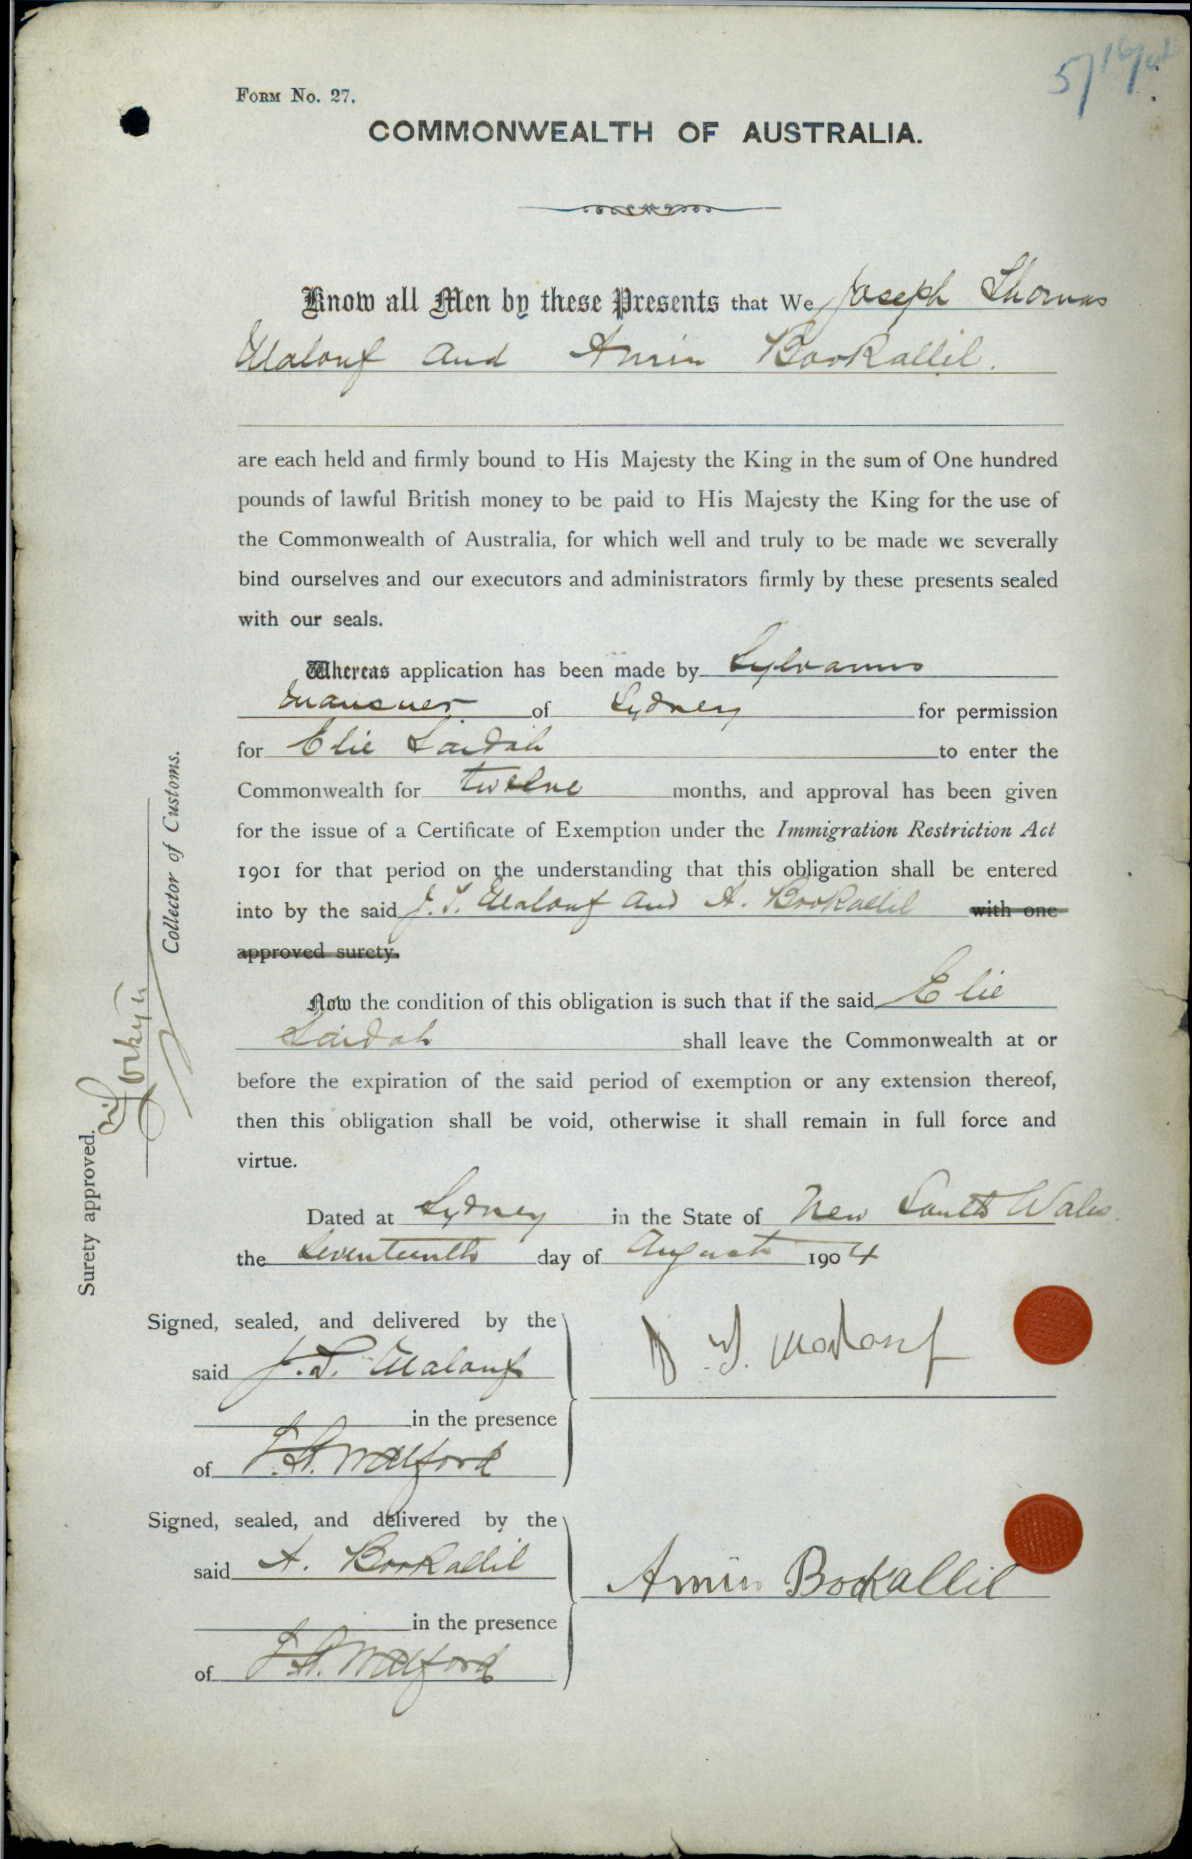 Form No. 27.
COMMONWEALTH OF AUSTRALIA.
Know all Men by these Presents that We Joseph Thomas
Malouf and Amin Bookallil.
are each held and firmly bound to His Majesty the King in the sum of One hundred
pounds of lawful British money to be paid to His Majesty the King for the use of
the Commonwealth of Australia, for which well and truly to be made we severally
bind ourselves and our executors and administrators firmly by these presents sealed
with our seals.
Whereas application has been made by Sylvanus
Mansner of Sydney for permission
for Elie Saidah to enter the
Commonwealth for twelve months, and approval has been given
for the issue of a Certificate of Exemption under the Immigration Restriction Act
1901 for that period on the understanding that this obligation shall be entered
into by the said J. T. Malouf and A. Bookallil with one
approved surety.
Now the condition of this obligation is such that if the said Elie
Saidah shall leave the Commonwealth at or
before the expiration of the said period of exemption or any extension thereof,
then this obligation shall be void, otherwise it shall remain in full force and
virtue.
Dated at Sydney in the State of New South Wales.
the Seventeenth day of August 1904
Signed, sealed, and delivered by the
said J. T. Malouf
in the presence
of
J. T. Malouf
Signed, sealed, and delivered by the
said A. Bookallil
in the presence
of
Amin Bookallil
Surety approved.
Collector of Customs.